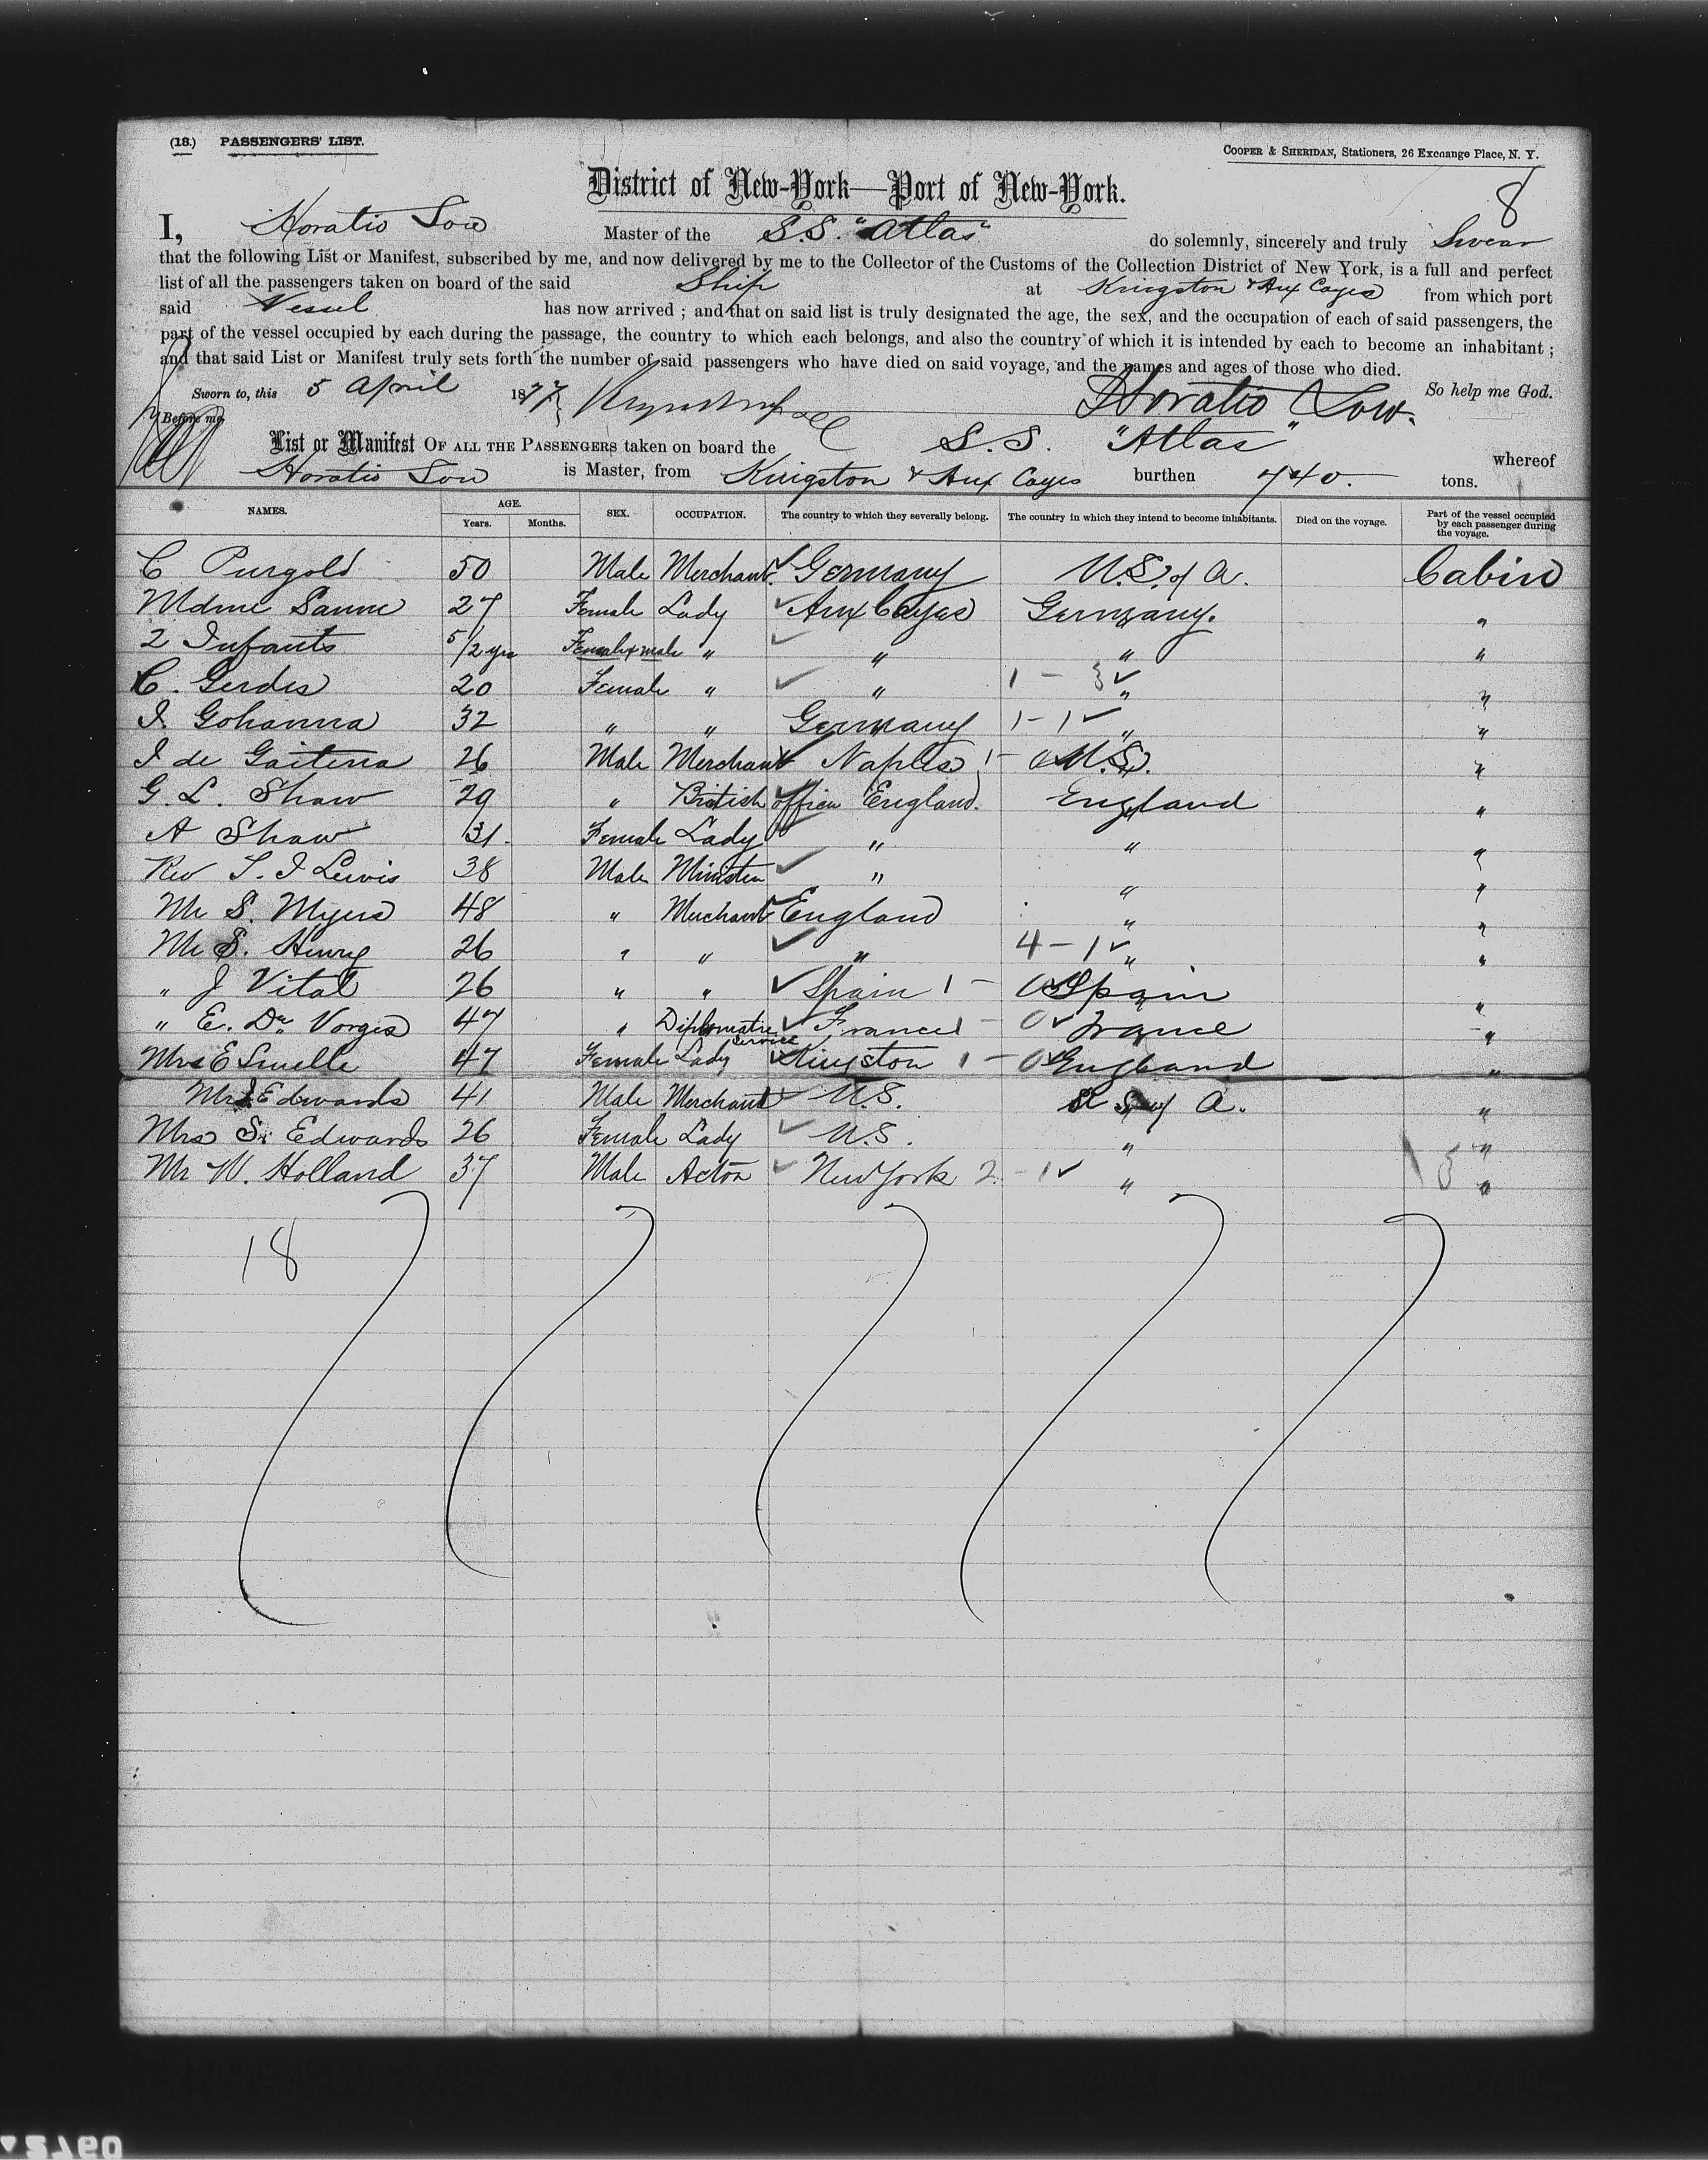 (18.) PASSENGERS' LIST.
COOPER & SHERIDAN, Stationers, 26 Exchange Place, N. Y.
8
District of New-York—Port of New-York.
I, Horatio Low Master of the S.S. "Atlas" do solemnly, sincerely and truly Swear
that the following List or Manifest, subscribed by me, and now delivered by me to the Collector of the Customs of the Collection District of New York, is a full and perfect
list of all the passengers taken on board of the said Ship at Kingston & Aux Cayes from which port
said Vessel has now arrived ; and that on said list is truly designated the age, the sex, and the occupation of each of said passengers, the
part of the vessel occupied by each during the passage, the country to which each belongs, and also the country of which it is intended by each to become an inhabitant ;
and that said List or Manifest truly sets forth the number of said passengers who have died on said voyage, and the names and ages of those who died.
Sworn to, this 5 April 1877 Horatio Low. So help me God.
Before me,
List or Manifest OF ALL THE PASSENGERS taken on board the S.S. "Atlas" whereof
Horatio Low is Master, from Kingston & Aux Cayes burthen 740. tons.
NAMES. AGE. Years. Months. SEX. OCCUPATION. The country to which they severally belong. The country in which they intend to become inhabitants. Died on the voyage. Part of the vessel occupied by each passenger during the voyage.
C Purgold 50 Male Merchant Germany U.S. of A. Cabin
Mdme 27 Female Lady Aux Cayes Germany. "
2 Infants 5/2 yrs Female & male " " " "
C. Gerdes 20 Female " " 1 - 3 " "
I. Gohanna 32 " " Germany 1 - 1 " "
I de Gaiteria 26 Male Merchant Naples 1 - 0 U.S. "
G. L. Shaw 29 " British officer England. England "
A Shaw 31. Female Lady " " "
Rev S. I Lewis 38 Male Minister " " "
Mr S. Myers 48 " Merchant England " "
Mr S. Henry 26 " " " 4 - 1 " "
" J Vital 26 " " Spain 1 - 0 Spain "
" E. De Vorges 47 " Diplomatic Service France 1 - 0 France "
Mrs E 47 Female Lady Kingston 1 - 0 England "
Mr J Edwards 41 Male Merchant U.S. U S of A. "
Mrs S. Edwards 26 Female Lady U.S. " "
Mr W. Holland 37 Male Actor New York 2 - 1 " "
18